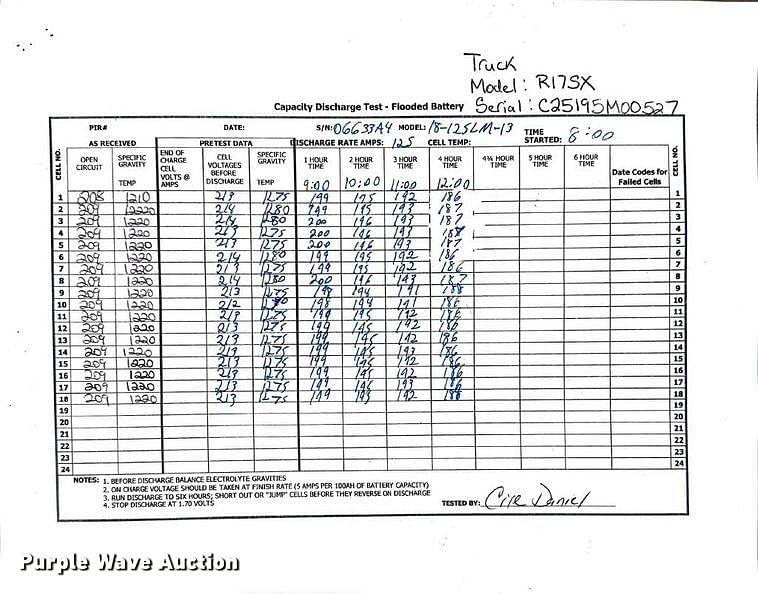 Truck
Model: R17SX
Serial: C25195M00527
Capacity Discharge Test - Flooded Battery
PIR# DATE: S/N: 06633A4 MODEL: 18-125LM-13 TIME STARTED: 8:00
AS RECEIVED PRETEST DATA DISCHARGE RATE AMPS: 125 CELL TEMP:
CELL NO. OPEN CIRCUIT SPECIFIC GRAVITY TEMP END OF CHARGE CELL VOLTS @ AMPS CELL VOLTAGES BEFORE DISCHARGE SPECIFIC GRAVITY TEMP 1 HOUR TIME 2 HOUR TIME 3 HOUR TIME 4 HOUR TIME 4¾ HOUR TIME 5 HOUR TIME 6 HOUR TIME Date Codes for Failed Cells CELL NO.
9:00 10:00 11:00 12:00
1 208 1210 213 1275 199 195 192 186 1
2 209 1220 214 1280 199 195 193 187 2
3 209 1220 214 1280 200 196 193 187 3
4 209 1220 213 1275 200 196 193 4
5 209 1220 213 1275 200 196 193 187 5
6 209 1220 214 1280 199 195 192 186 6
7 209 1220 213 1275 199 195 192 186 7
8 209 1220 214 1280 200 196 193 187 8
9 209 1220 213 1275 194 191 9
10 209 1220 212 198 194 191 186 10
11 209 1220 213 1275 195 192 186 11
12 209 1220 213 1275 199 195 192 186 12
13 209 1220 213 1275 199 195 192 186 13
14 209 1220 213 1275 199 195 193 186 14
15 209 1220 213 1275 199 195 192 186 15
16 209 1220 213 1275 199 196 192 186 16
17 209 1220 213 1275 199 196 193 186 17
18 209 1220 213 1275 199 195 192 18
19 19
20 20
21 21
22 22
23 23
24 24
NOTES: 1. BEFORE DISCHARGE BALANCE ELECTROLYTE GRAVITIES
2. ON CHARGE VOLTAGE SHOULD BE TAKEN AT FINISH RATE (5 AMPS PER 100AH OF BATTERY CAPACITY)
3. RUN DISCHARGE TO SIX HOURS; SHORT OUT OR "JUMP" CELLS BEFORE THEY REVERSE ON DISCHARGE
4. STOP DISCHARGE AT 1.70 VOLTS
TESTED BY: Daniel
Purple Wave Auction